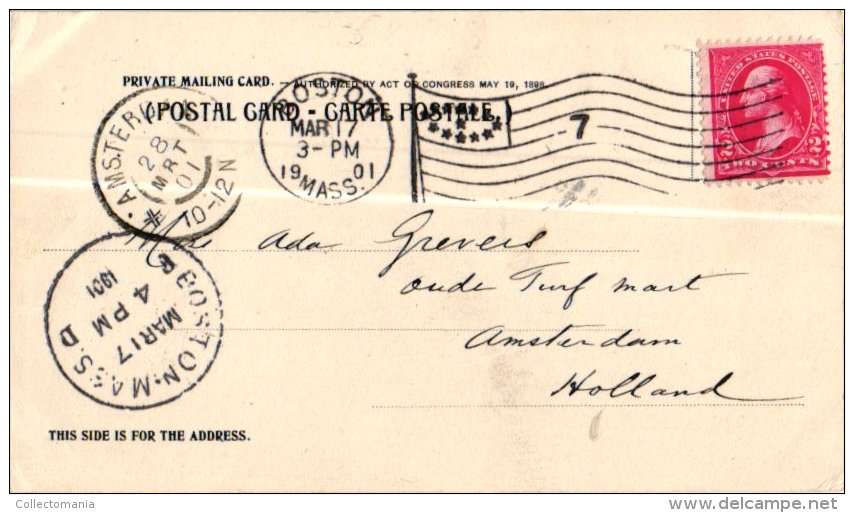 PRIVATE MAILING CARD. – AUTHORIZED BY ACT OF CONGRESS MAY 19, 1898.
(POSTAL CARD - CARTE POSTALE.)
BOSTON
MAR 17
3-PM
19 01
MASS.
7
UNITED STATES POSTAGE
2 2
TWO CENTS
28
MRT
01
10-12N
BOSTON.MASS.
1901
4 PM
MAR 17
D
Miss Ada Grevers
Oude Turf mart
Amsterdam
Holland
THIS SIDE IS FOR THE ADDRESS.
Collectomania
delcampe.net